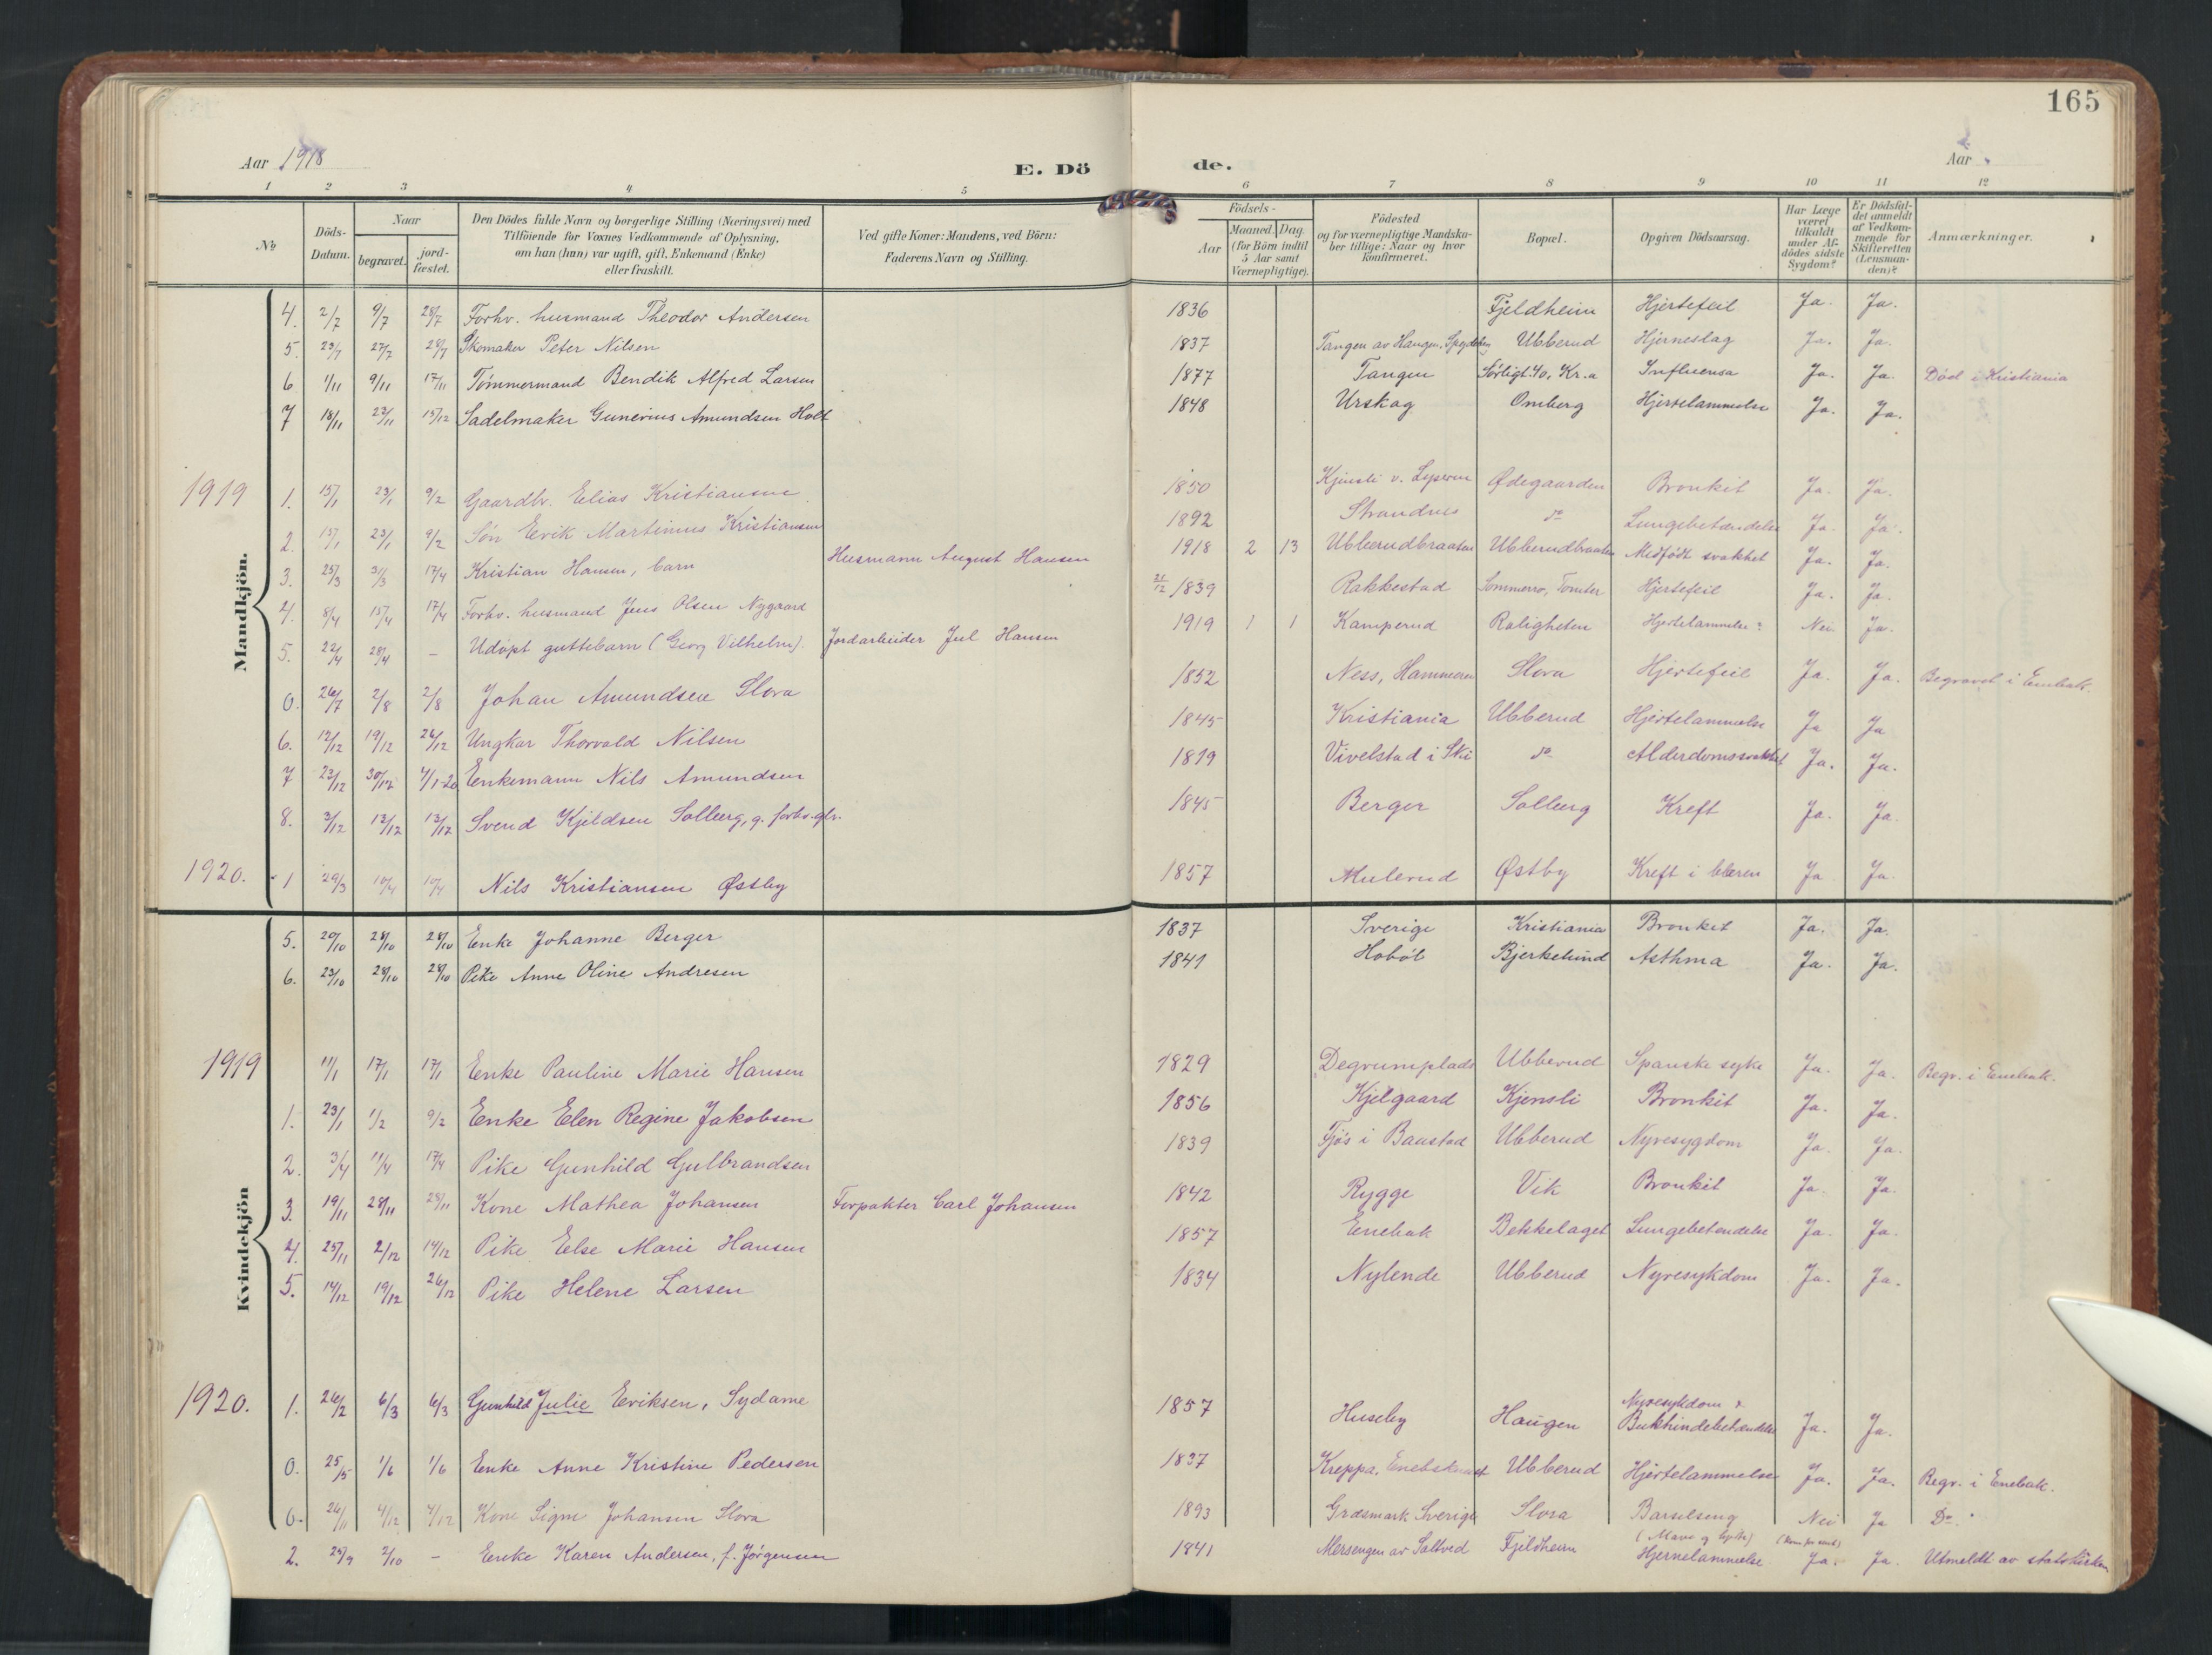 165
Aar 1918
E. Dö
de.
Aar
1 2 3 4 5 6 7 8 9 10 11 12
No
Döds-
Datum.
Naar
begravet.
jord-
fæstet.
Den Dödes fulde Navn og borgerlige Stilling (Næringsvei) med
Tilföiende for Voxnes Vedkommende af Oplysning,
om han (hun) var ugift, gift, Enkemand (Enke)
eller fraskilt.
Ved gifte Koner: Mandens, ved Börn:
Faderens Navn og Stilling.
Födsels-
Aar
Maaned. Dag.
(for Börn indtil
5 Aar samt
Værnepligtige).
Födested
og for værnepligtige Mandska-
ber tillige: Naar og hvor
konfirmeret.
Bopæl.
Opgiven Dödsaarsag.
Har Læge
været
tilkaldt
under Af-
dödes sidste
Sygdom?
Er Dödsfal-
det anmeldt
af Vedkom-
mende for
Skifteretten
(Lensman-
den)?
Anmærkninger.
Mandkjön.
4. 2/7 9/7 28/7 Forhv. husmand Theodor Andersen 1836 Fjeldheim Hjertefeil Ja. Ja.
5. 23/7 27/7 28/7 Skomaker Peter Nilsen 1837 Tangen av Haugen, Ubberud Hjerneslag Ja. Ja.
6 1/11 9/11 17/11 Tömmermand Bendik Alfred Larsen 1877 Tangen Sörligt. 40, Kr.a Influensa Ja. Ja. Död i Kristiania
7 18/11 23/11 15/12 Sadelmaker Gunerius Amundsen Holt 1848 Urskog Omberg Hjertelammelse Ja. Ja.
1919
1. 15/1 23/1 9/2 Gaardbr. Elias Kristiansen 1850 Kjensli v. Lyseren Ødegaarden Bronkit Ja. Ja.
2. 15/1 23/1 9/2 Sön Erik Martinius Kristiansen 1892 Strandnes do Lungebetændelse Ja. Ja.
3. 25/3 31/3 17/4 Kristian Hansen, barn Husmann August Hansen 1918 2 13 Ubberudbraaten Ubberudbraaten Medfödt svakhet Ja. Ja.
4. 8/4 15/4 17/4 Forhv. husmand Jens Olsen Nygaard 21/12 1839 Rakkestad Sommerro, Tomter Hjertefeil Ja. Ja.
5. 22/4 28/4 – Udöpt guttebarn (Georg Vilhelm). Jordarbeider Jul Hansen 1919 1 1 Kamperud Roligheten Hjertelammelse? Nei Ja.
0. 26/7 2/8 2/8 Johan Amundsen Slora 1852 Ness, Hammeren Slora Hjertefeil Ja. Ja. Begravet i Enebak.
6. 12/12 19/12 26/12 Ungkar Thorvald Nilsen 1845 Kristiania Ubberud Hjertelammelse Ja Ja
7 23/12 30/12 4/1-20 Enkemann Nils Amundsen 1819 Vivelstad i Ski do Alderdomssvakhet Ja. Ja.
8. 3/12 13/12 13/12 Svend Kjeldsen Solberg, g. forhv. gbr. 1845 Berger Solberg Kreft Ja. Ja.
1920.
1 29/3 10/4 10/4 Nils Kristiansen Østby 1857 Mulerud Østby Kreft i blæren Ja Ja.
Kvindekjön
5. 20/10 28/10 28/10 Enke Johanne Berger 1837 Sverige Kristiania Bronkit Ja. Ja.
6. 23/10 28/10 28/10 Pike Anne Oline Andresen 1841 Hoböl Bjerkelund Asthma Ja. Ja.
1919
11/1 17/1 17/1 Enke Pauline Marie Hansen 1829 Degrumplads Ubberud Spanske syke Ja. Ja. Begr. i Enebak.
1. 23/1 1/2 9/2 Enke Elen Regine Jakobsen 1856 Kjelgaard Kjensli Bronkit Ja. Ja.
2. 3/4 11/4 17/4 Pike Gunhild Gulbrandsen 1839 Fjös i Baustad Ubberud Nyresygdom Ja. Ja.
3. 19/11 28/11 28/11 Kone Mathea Johansen Forpakter Carl Johansen 1842 Rygge Vik Bronkit Ja Ja.
4. 25/11 2/12 14/12 Pike Else Marie Hansen 1857 Enebak Bekkelaget Lungebetendelse Ja. Ja.
5. 14/12 19/12 26/12 Pike Helene Larsen 1834 Nylende Ubberud Nyresykdom Ja. Ja.
1920.
1. 26/2 6/3 6/3 Gunhild Julie Eriksen, Sydame 1857 Huseby Haugen Nyresykdom &
Bukhindebetændelse Ja. Ja.
0. 25/5 1/6 1/6 Enke Anne Kristine Pedersen 1837 Kreppa, Ubberud Hjertelammelse Ja. Ja. Begr. i Enebak.
0. 26/11 4/12 4/12 Kone Signe Johansen Slora 1893 Græsmark Sverige Slora Barselseng Nei Ja Do.
2. 23/9 2/10 – Enke Karen Andersen, f. Jörgensen 1841 Mersengen av Saltved Fjeldheim Hjernelammelse Ja. Ja. Utmeldt av statskirken